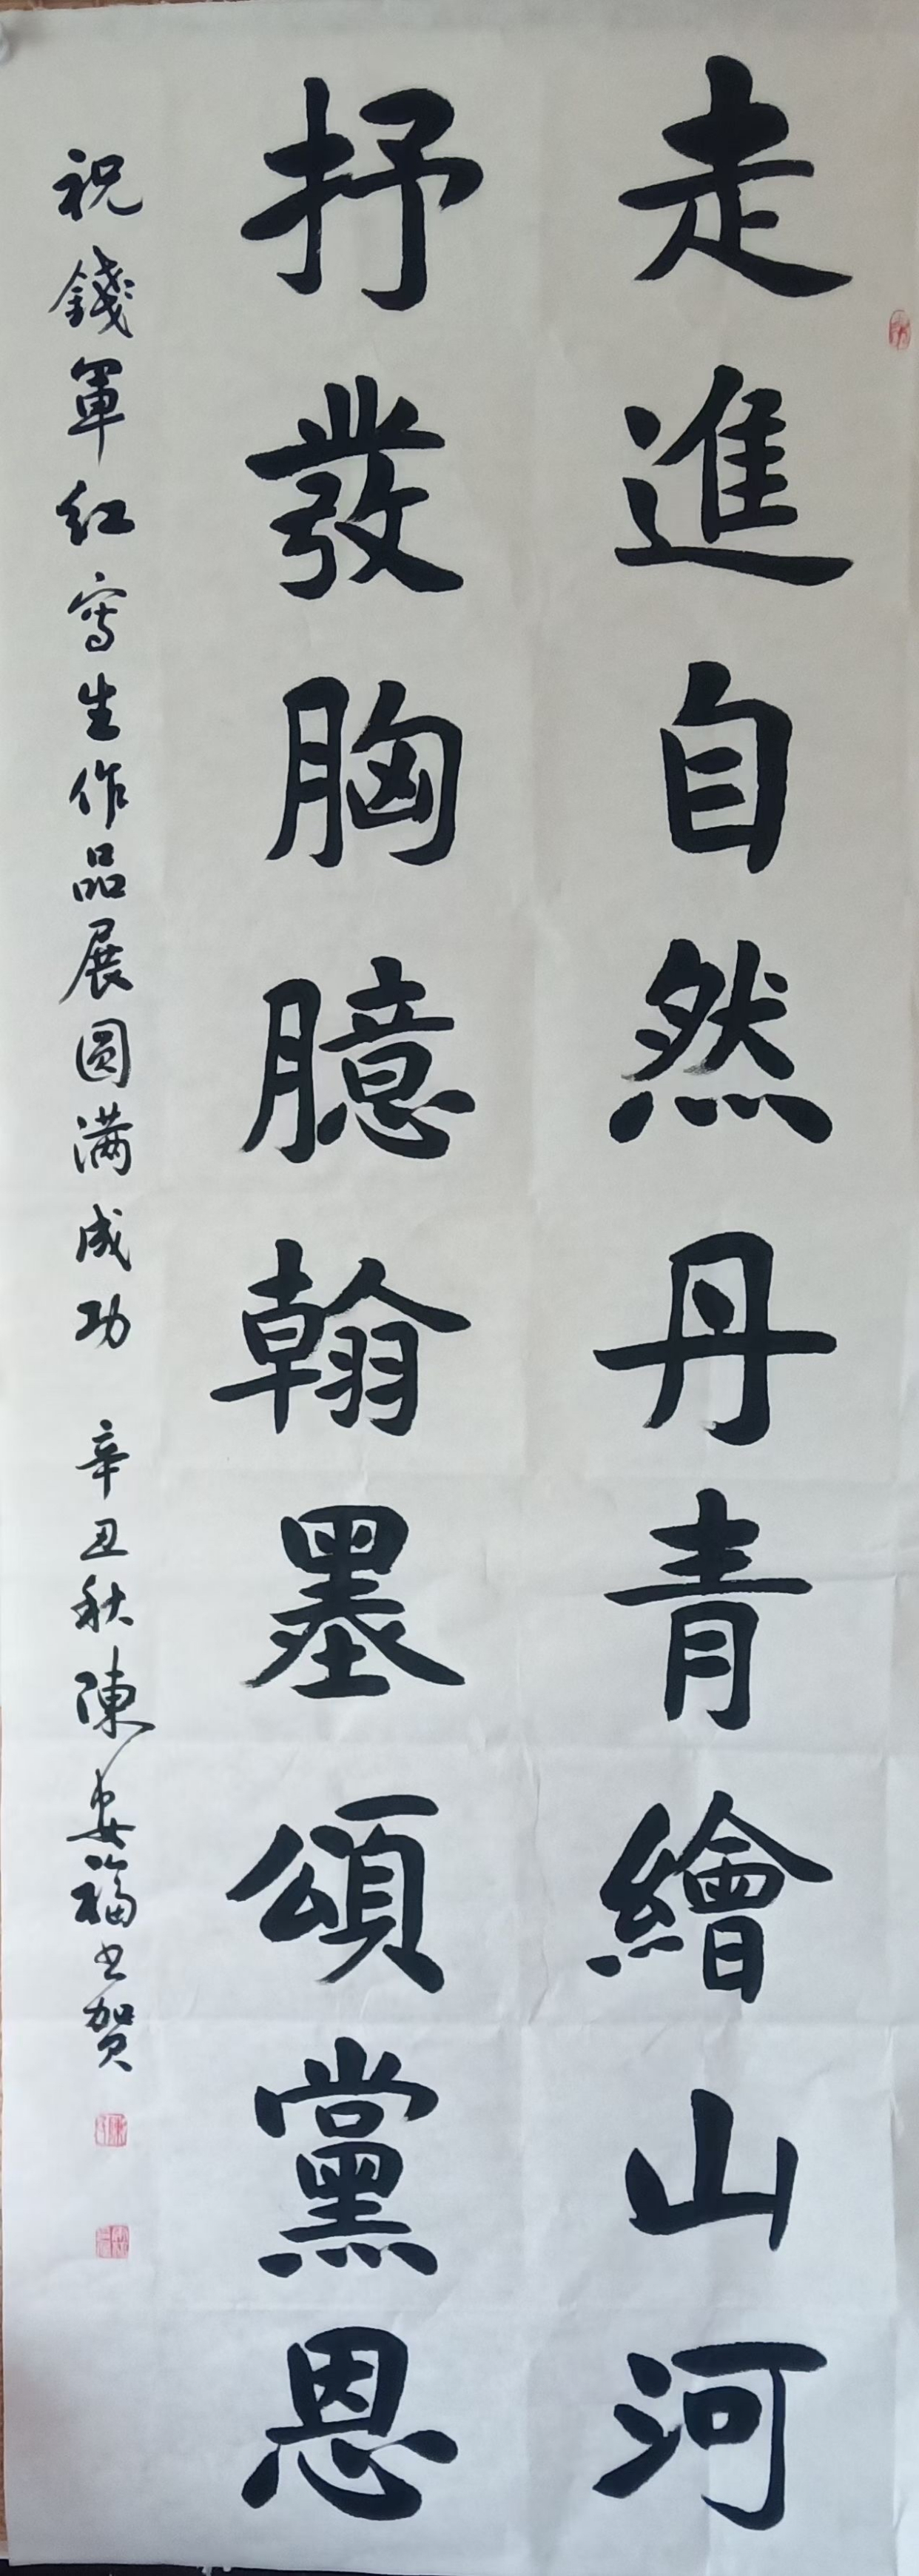 走進自然丹青繪山河
抒發胸臆翰墨頌黨恩
祝錢軍红寫生作品展圆满成功 辛丑秋陳安福书贺